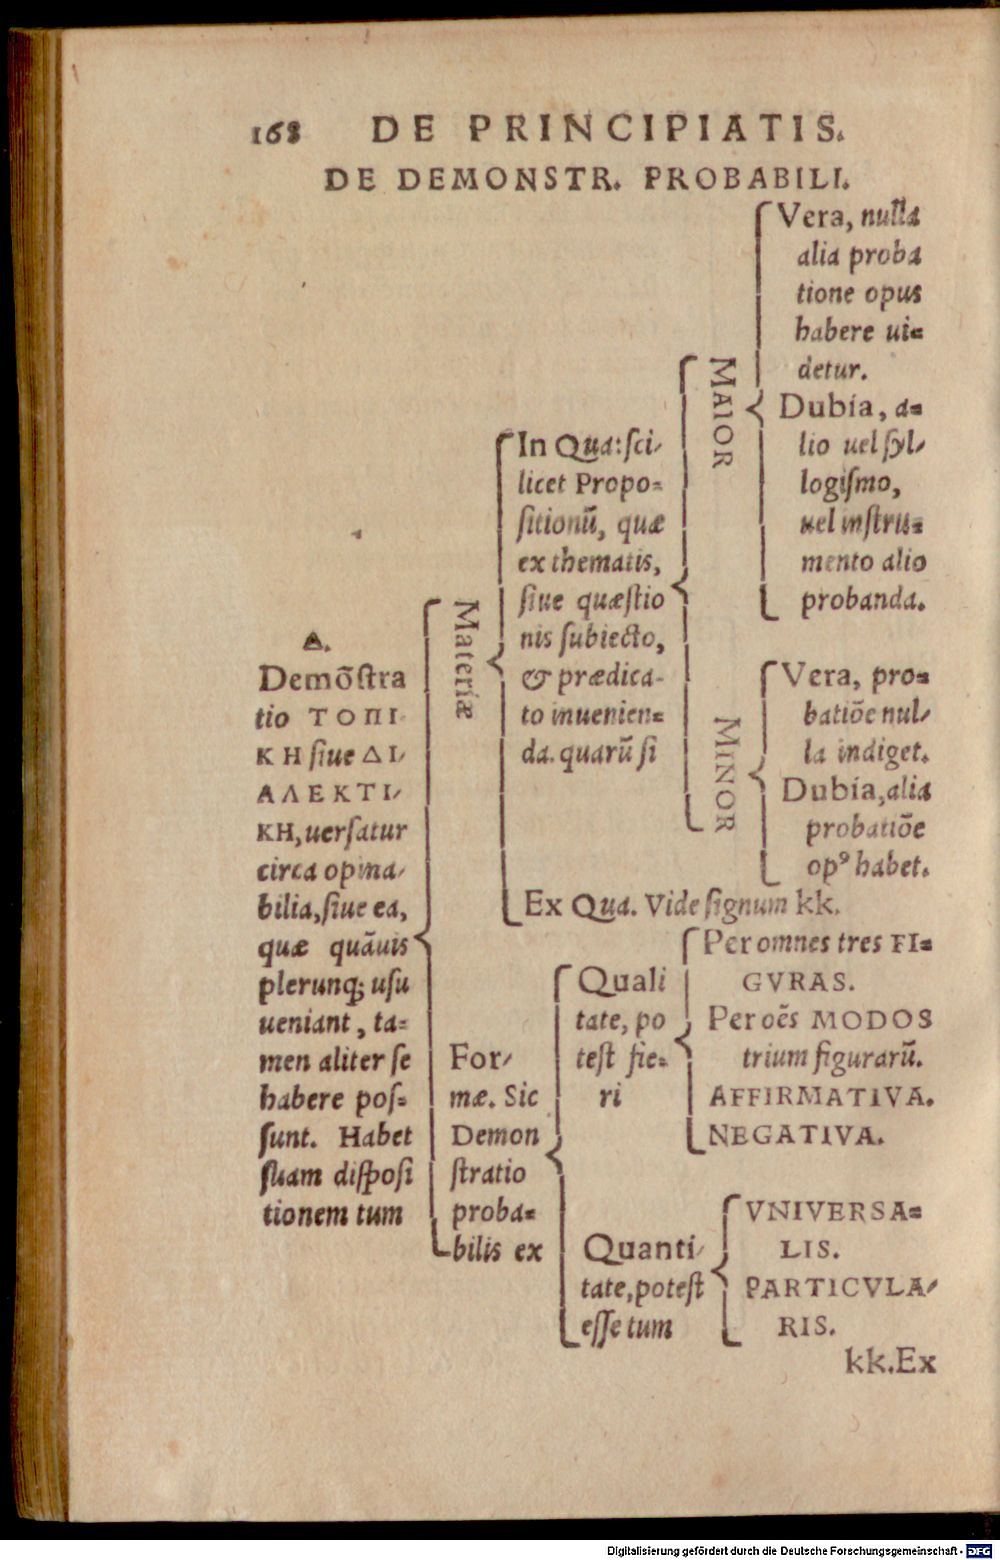 168 DE PRINCIPIATIS.
DE DEMONSTR. PROBABILI.
Δ.
Demõſtra
tio ΤΟΠΙ
ΚΗ ſiue ΔΙ/
ΑΛΕΚΤΙ/
ΚΗ, uerſatur
circa opina/
bilia, ſiue ea,
quæ quãuis
plerunq; uſu
ueniant, ta=
men aliter ſe
habere poſ=
ſunt. Habet
ſuam diſpoſi
tionem tum
Materiæ
In Qua: ſci/
licet Propo=
ſitionũ, quæ
ex thematis,
ſiue quæſtio
nis ſubiecto,
& prædica-
to inuenien=
da. quarũ ſi
MAIOR
Vera, nulla
alia proba
tione opus
habere ui=
detur.
Dubia, a=
lio uel ſyl/
logiſmo,
uel inſtru=
mento alio
probanda.
MINOR
Vera, pro=
batiõe nul/
la indiget.
Dubia, alia
probatiõe
opꝰ habet.
Ex Qua. Vide ſignum kk.
For/
mæ. Sic
Demon
ſtratio
proba=
bilis ex
Quali
tate, po
teſt fie=
ri
Per omnes tres FI=
GVRAS.
Per oẽs MODOS
trium figurarũ.
AFFIRMATIVA.
NEGATIVA.
Quanti/
tate, poteſt
eſſe tum
VNIVERSA=
LIS.
PARTICVLA/
RIS.
kk. Ex
Digitalisierung gefördert durch die Deutsche Forschungsgemeinschaft - DFG